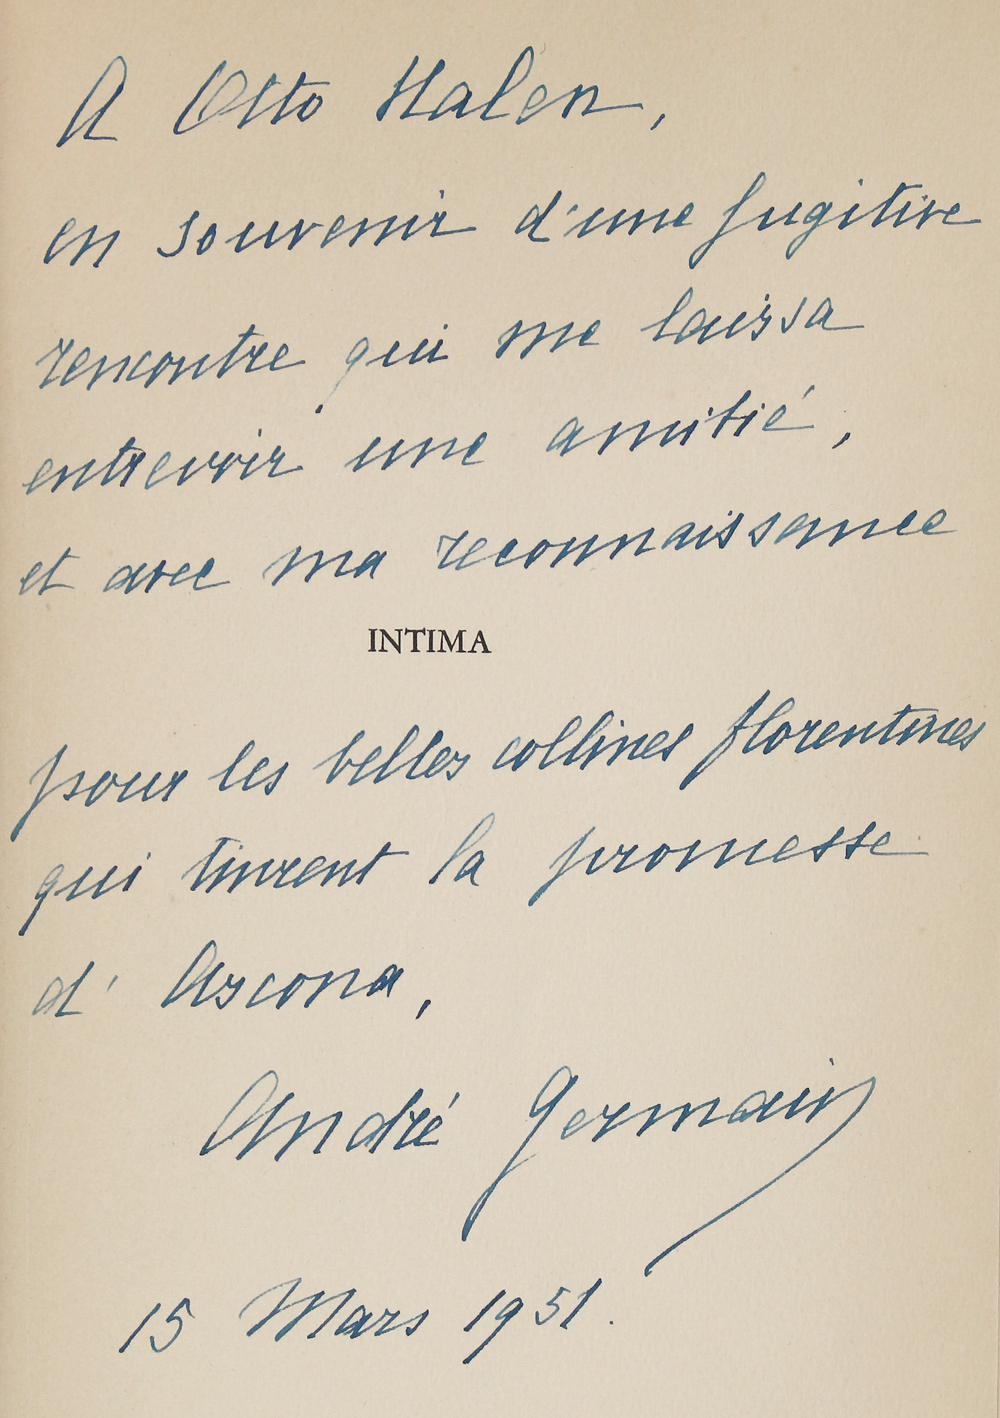 A Otto Halen,
en souvenir d'une fugitive
rencontre qui me laissa
entrevoir une amitié,
et avec ma reconnaissance
INTIMA
pour les belles collines florentines
qui tinrent la promesse
d'Ascona,
André Germain
15 Mars 1951.